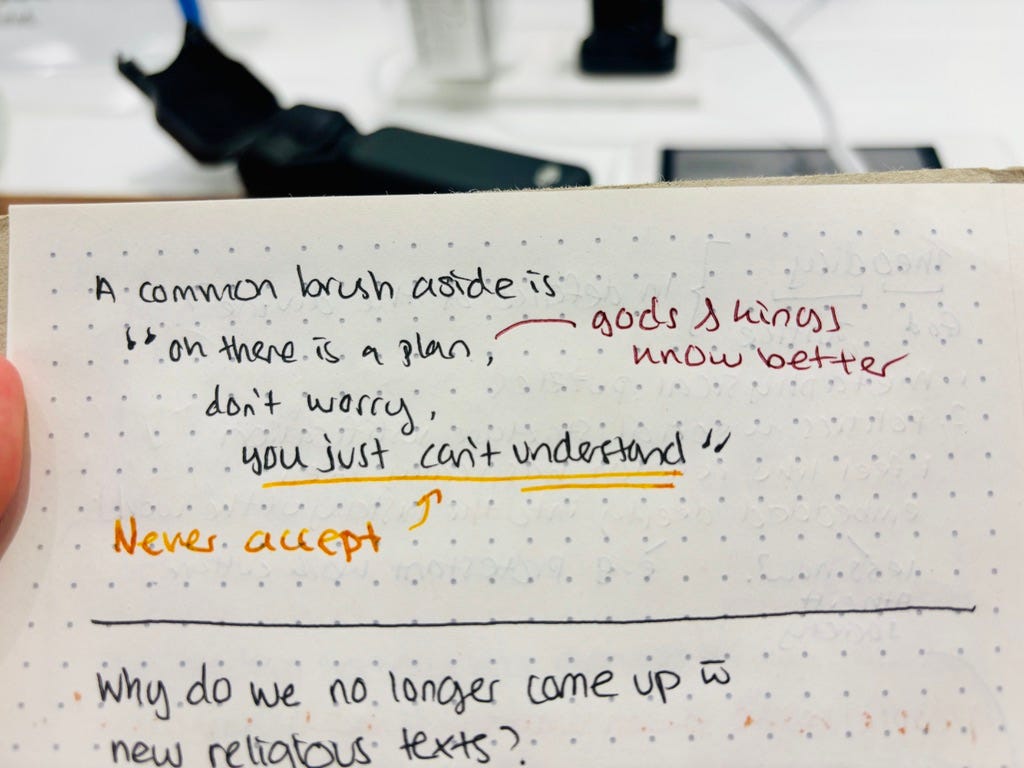 A common brush aside is
"oh there is a plan, gods & kings
know better
don't worry,
you just can't understand"
Never accept
Why do we no longer come up w̄
new religious texts?